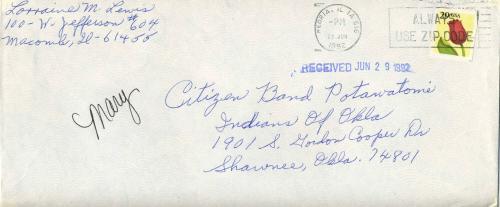 Lorraine M. Lewis
100-W-Jefferson #604
Macomb, Il-61455
PEORIA, IL
PM
1992
ALWAYS
USE ZIP CODE
29 USA
RECEIVED JUN 29 1992
Mary
Citizen Band Potawatomi
Indians Of Okla
1901 S. Gordon Cooper Dr
Shawnee, Okla. 74801